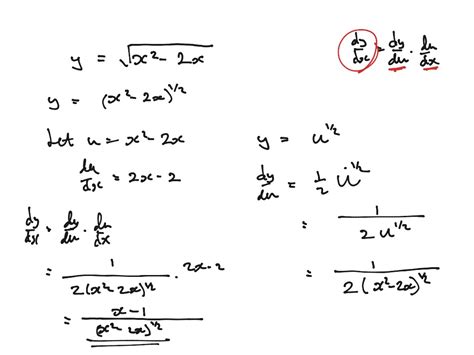 y = √(x² - 2x)
dy/dx = dy/du · du/dx
y = (x² - 2x)^1/2
Let u = x² - 2x
du/dx = 2x - 2
y = u^1/2
dy/du = 1/2 u^-1/2
= 1/(2u^1/2)
= 1/(2(x² - 2x)^1/2)
dy/dx = dy/du · du/dx
= 1/(2(x² - 2x)^1/2) · 2x - 2
= (x - 1)/(x² - 2x)^1/2